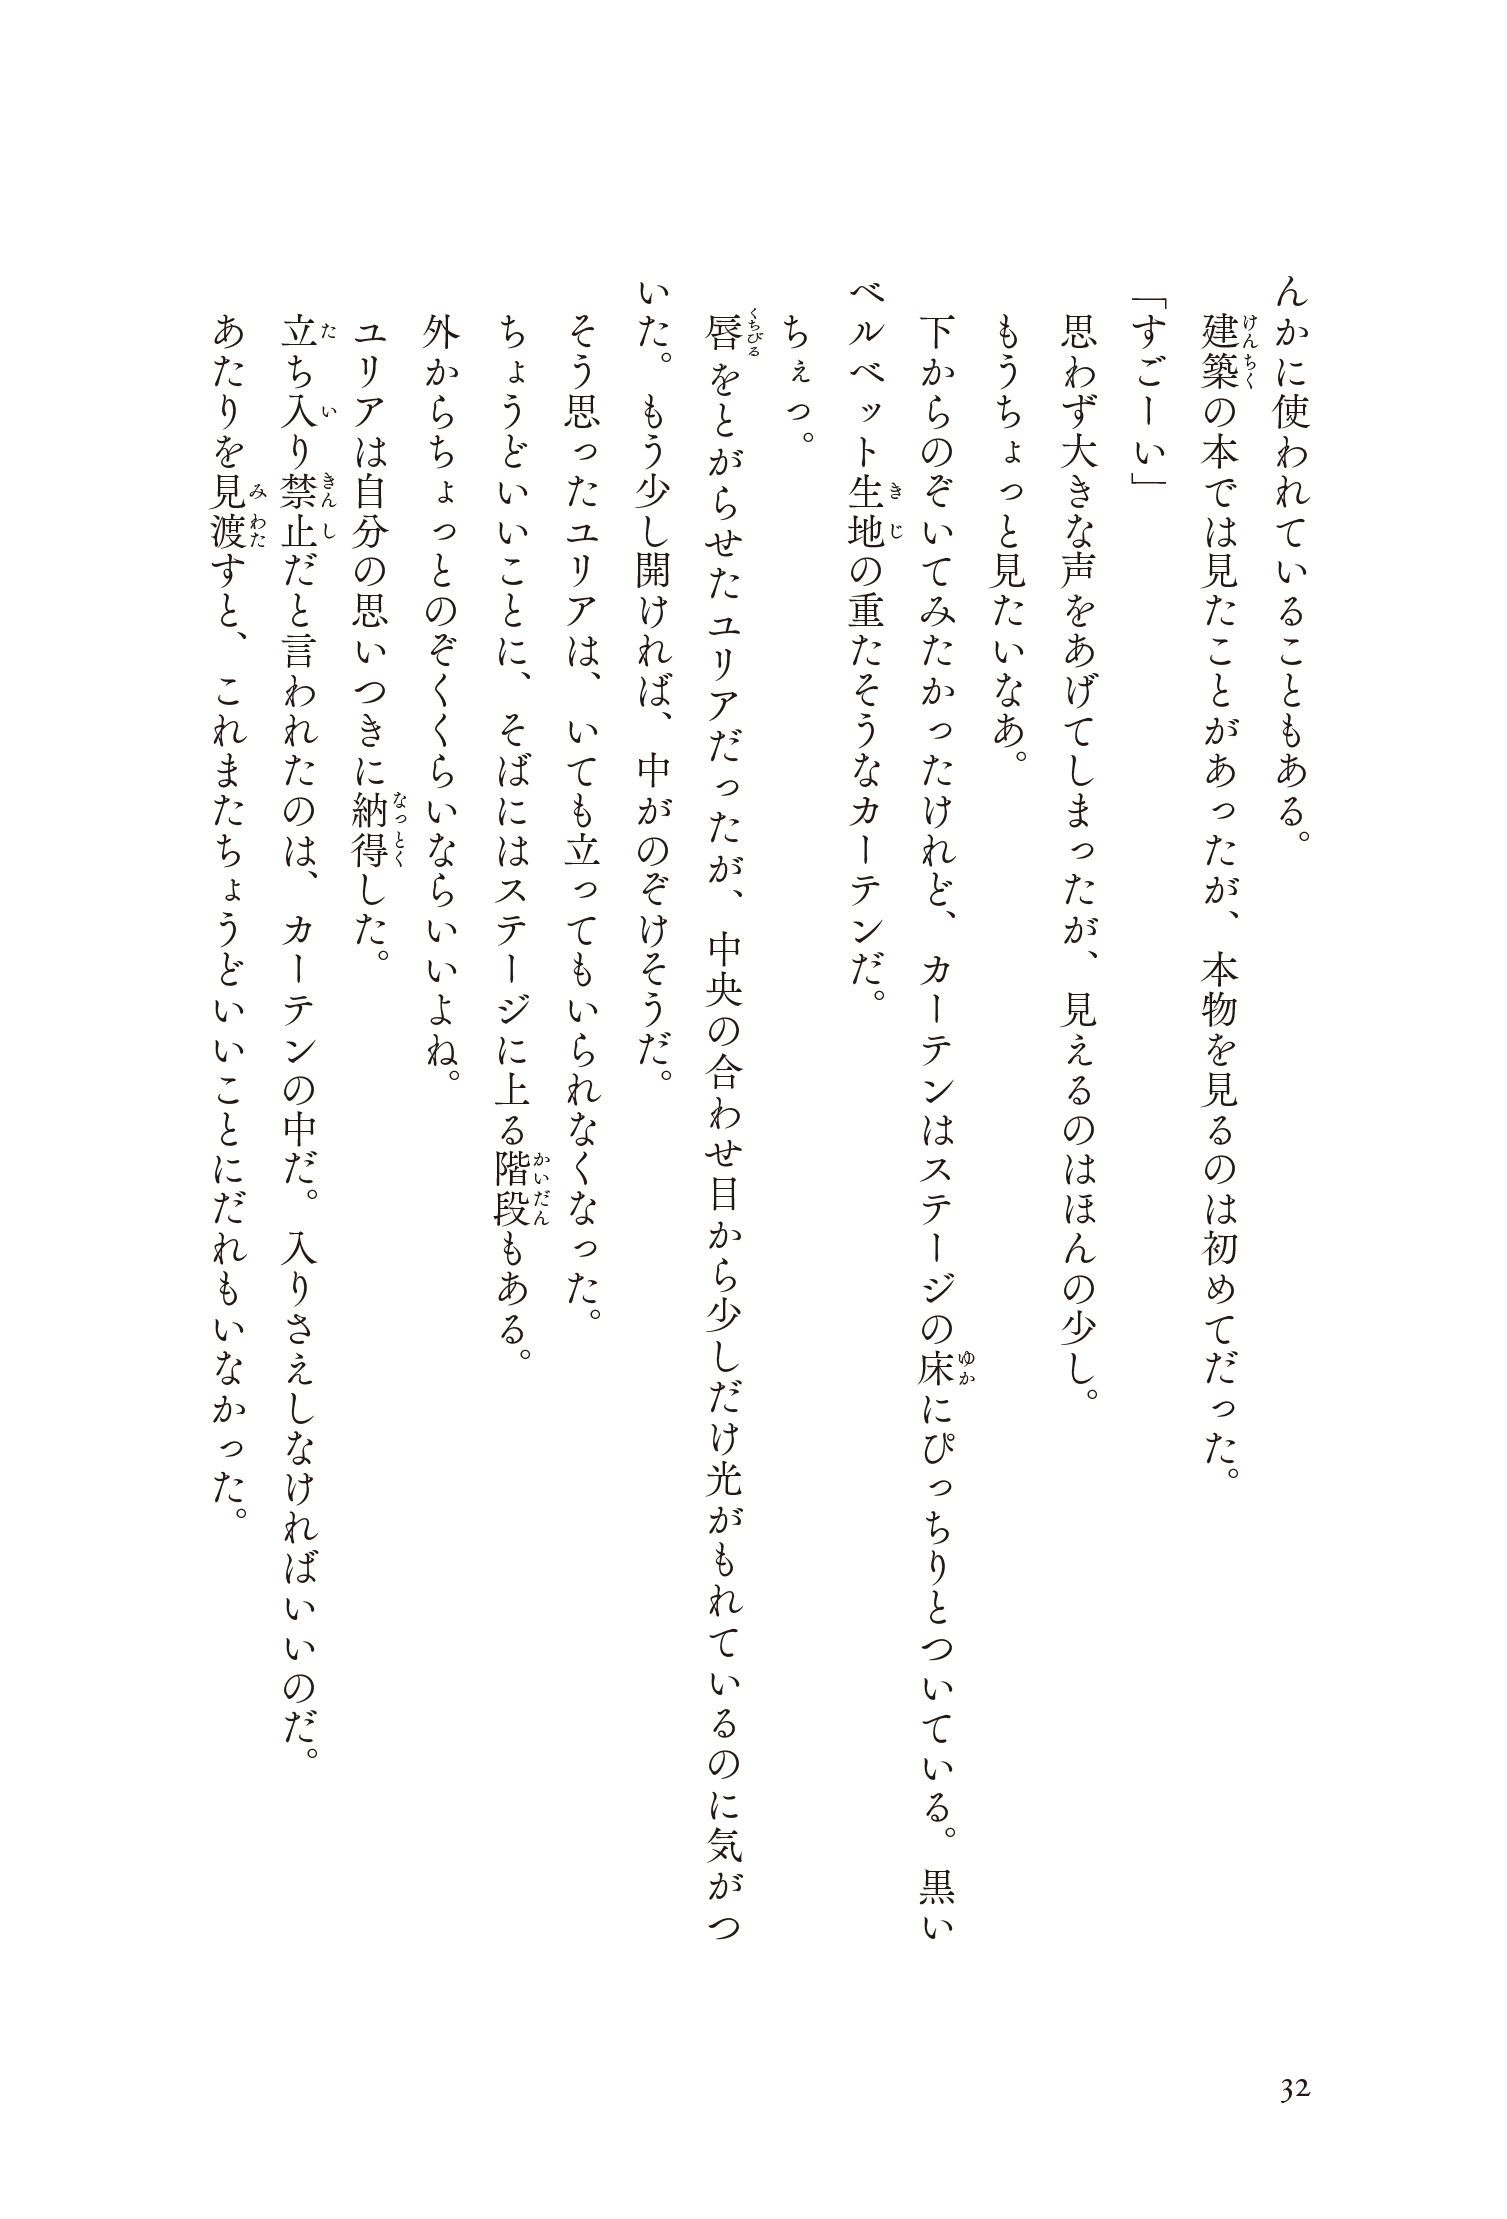 んかに使われていることもある。
建築の本では見たことがあったが、本物を見るのは初めてだった。
「すごーい」
思わず大きな声をあげてしまったが、見えるのはほんの少し。
もうちょっと見たいなあ。
下からのぞいてみたかったけれど、カーテンはステージの床にぴっちりとついている。黒い
ベルベット生地の重たそうなカーテンだ。
ちぇっ。
唇をとがらせたユリアだったが、中央の合わせ目から少しだけ光がもれているのに気がつ
いた。もう少し開ければ、中がのぞけそうだ。
そう思ったユリアは、いても立ってもいられなくなった。
ちょうどいいことに、そばにはステージに上る階段もある。
外からちょっとのぞくくらいならいいよね。
ユリアは自分の思いつきに納得した。
立ち入り禁止だと言われたのは、カーテンの中だ。入りさえしなければいいのだ。
あたりを見渡すと、これまたちょうどいいことにだれもいなかった。
32